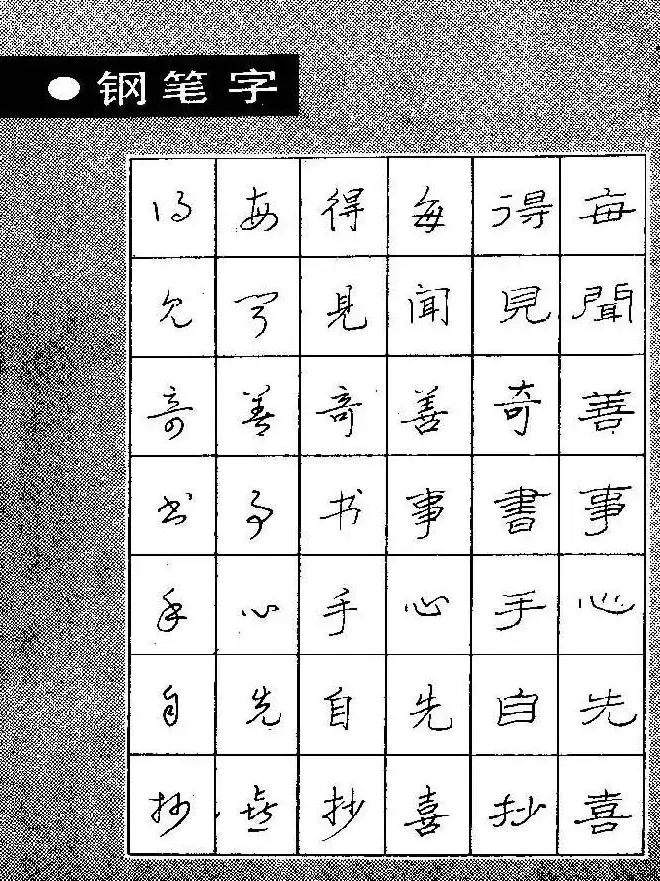 钢笔字
每聞善事心先喜
得見奇書手自抄
每闻善事心先喜
得見奇书手自抄
每闻善事心先喜
得见奇书手自抄